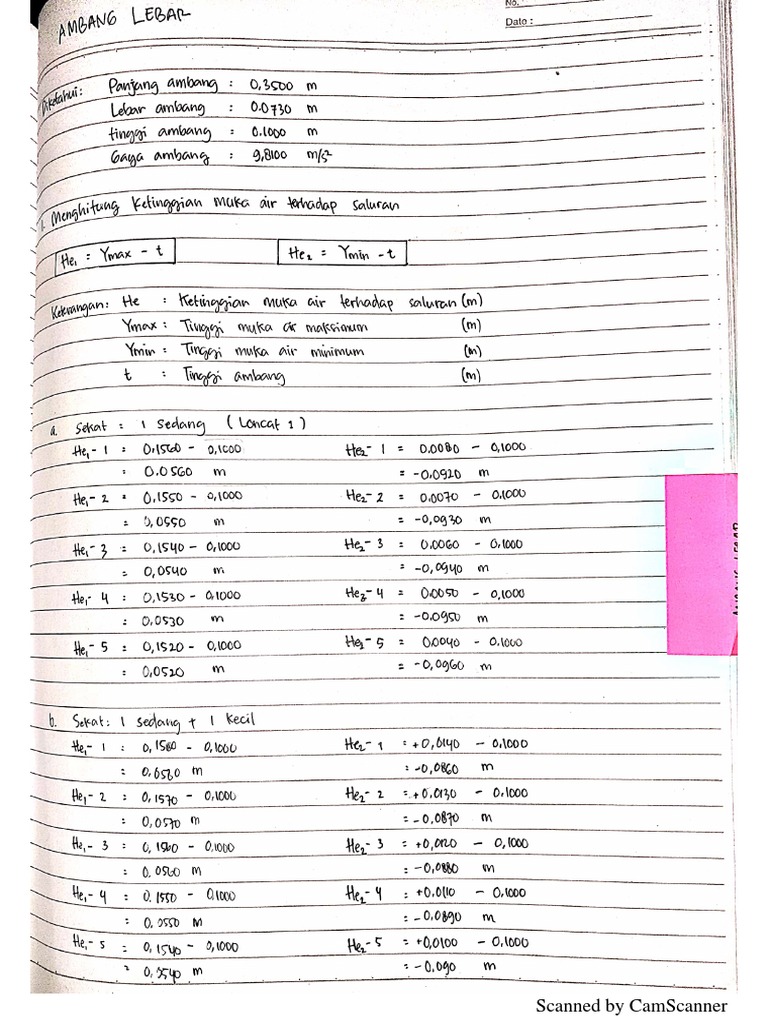 No.
Date :
AMBANG LEBAR
Diketahui: Panjang ambang : 0,3500 m
Lebar ambang : 0.0730 m
tinggi ambang : 0.1000 m
Gaya ambang : 9,8100 m/s²
1. Menghitung Ketinggian muka air terhadap saluran
He₁ = Ymax - t He₂ = Ymin - t
Keterangan: He : Ketinggian muka air terhadap saluran (m)
Ymax : Tinggi muka air maksimum (m)
Ymin : Tinggi muka air minimum (m)
t : Tinggi ambang (m)
a. Sekat : 1 Sedang (Loncat 1)
He₁- 1 = 0,1560 - 0,1000 He₂- 1 = 0.0080 - 0,1000
: 0.0560 m = -0.0920 m
He₁- 2 = 0,1550 - 0,1000 He₂- 2 = 0.0070 - 0.1000
: 0,0550 m = -0,0930 m
He₁- 3 = 0,1540 - 0,1000 He₂- 3 = 0.0060 - 0.1000
= 0,0540 m = -0,0940 m
He₁- 4 = 0,1530 - 0,1000 He₂- 4 = 0.0050 - 0,1000
: 0,0530 m = -0.0950 m
He₁- 5 = 0,1520 - 0,1000 He₂- 5 = 0.0040 - 0.1000
= 0,0520 m = -0,0960 m
b. Sekat: 1 sedang + 1 kecil
He₁- 1 = 0,1580 - 0,1000 He₂- 1 = +0,0140 - 0.1000
= 0,0580 m = -0,0860 m
He₁- 2 : 0,1570 - 0,1000 He₂- 2 = +0.0130 - 0.1000
: 0,0570 m = -0.0870 m
He₁- 3 : 0,1560 - 0,1000 He₂- 3 = +0,0120 - 0,1000
: 0.0560 m = -0,0880 m
He₁- 4 : 0.1550 - 0,1000 He₂- 4 = +0.0110 - 0.1000
: 0.0550 m = -0.0890 m
He₁- 5 = 0,1540 - 0,1000 He₂- 5 = +0,0100 - 0.1000
= 0,0540 m = -0.090 m
AMBANG LEBAR
Scanned by CamScanner